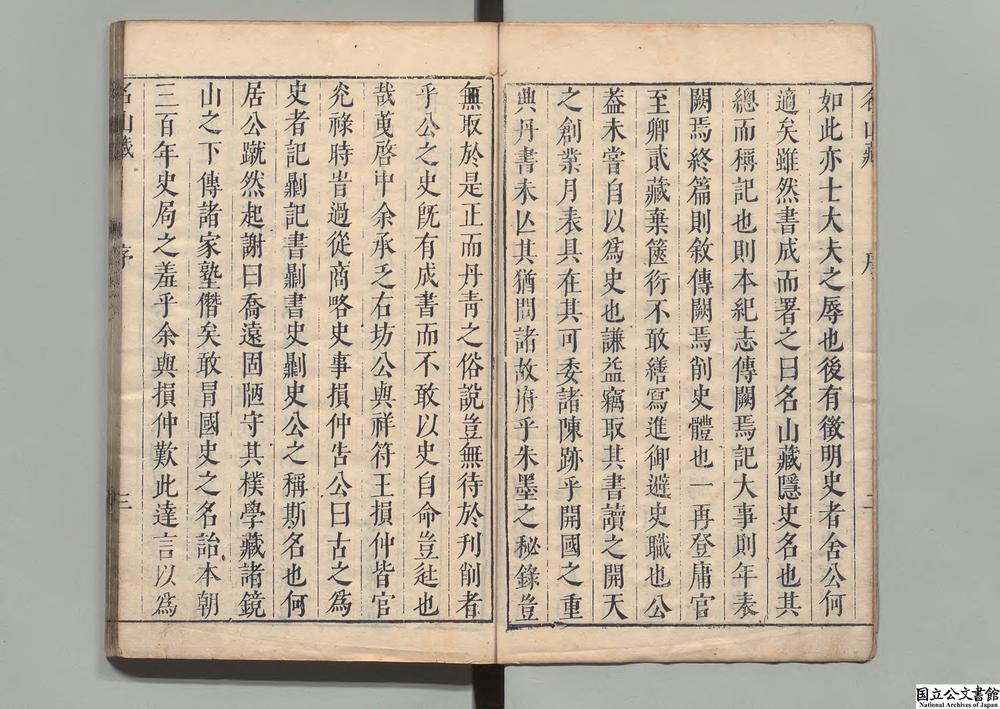 名山藏 序 二
如此亦士大夫之辱也後有徵明史者舍公何
適矣雖然書成而署之曰名山藏隱史名也其
總而稱記也則本紀志傳闕焉記大事則年表
闕焉終篇則敘傳闕焉削史體也一再登庸官
至卿貳藏棄篋衍不敢繕寫進御避史職也公
葢未嘗自以為史也謙益竊取其書讀之開天
之創業月表具在其可委諸陳跡乎開國之重
典丹書未亾其猶問諸故府乎朱墨之秘錄豈
無取於是正而丹靑之俗說豈無待於刋削者
乎公之史旣有成書而不敢以史自命豈誑也
哉萬啓中余承乏右坊公與祥符王損仲皆官
光祿時時過從商略史事損仲告公曰古之為
史者記劓記書劓書史劓史公之稱斯名也何
居公蹴然起謝曰喬遠固陋守其樸學藏諸鏡
山之下傳諸家塾僭矣敢冒國史之名詒本朝
三百年史局之羞乎余與損仲歎此達言以為
名山藏 序 三
国立公文書館
National Archives of Japan